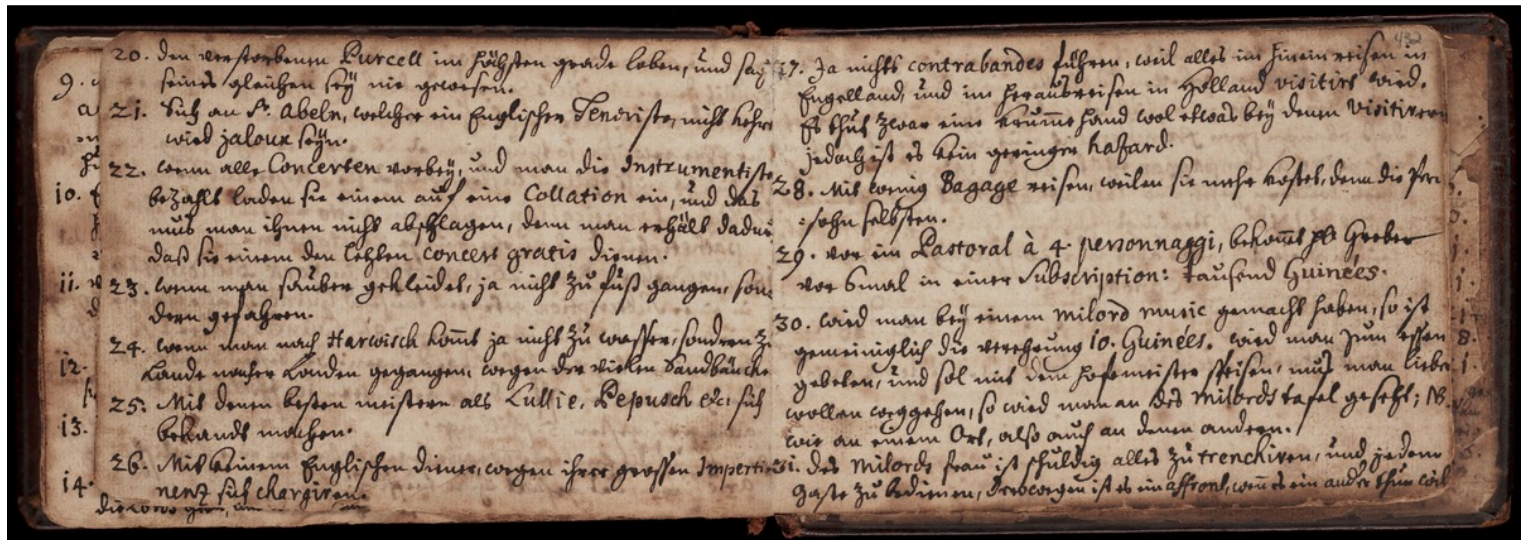 20. den verstorbenen Purcell im höchsten grade loben, und sag
seines gleichen sey nie gewesen.
21. Sich an Sr. Abeln, welcher ein Englischer Tenoriste, nicht kehre
wird jaloux seyn.
22. wenn alle Concerten vorbey, und man die Instrumentiste
bezahlt laden sie einem auf eine Collation ein, und das
mus man ihnen nicht abschlagen, denn man erhält dadur
daß sie einem den letzten concert gratis dienen.
23. wenn man sauber gekleidet, ja nicht zu fuß gangen, son
dern gefahren.
24. wenn man nach Harwisch komt ja nicht zu wasser, sondern z
Lande nacher Londen gegangen, wegen der vielen Sandbäncke
25. Mit denen besten meistern als Lullie, Pepusch etc: sich
bekandt machen.
26. Mit keinem Englischen diener, wegen ihrer grossen Imperti
nentz sich chargiren.
9.
10.
11.
12.
13.
14.
432
27. Ja nichts contrabandes führen, weil alles im hinein reisen in
Engelland, und im herausreisen in Holland visitirt wird.
Es thut zwar eine krumme hand wol etwas bey denen visitirern
jedoch ist es kein geringer hasard.
28. Mit wenig Bagage reisen, weilen sie mehr kostet, denn die Per
sohn selbsten.
29. vor ein Pastoral à 4. personnaggi, bekomt Greber
vor 6mal in einer Subscription: tausend Guinées.
30. wird man bey einem milord music gemacht haben, so ist
gemeiniglich die verehrung 10. Guinées. wird man zum essen
gebeten, und sol mit dem hofemeister speisen, mus man lieber
wollen weggehen, so wird man an des milords tafel gesetzt; NB.
wie an einem Ort, also auch an denen andern.
31. des milords frau ist schuldig alles zu trenchiren, und jedem
gaste zu bedienen, deswegen ist es ein affront, wenn es ein ander thun wil